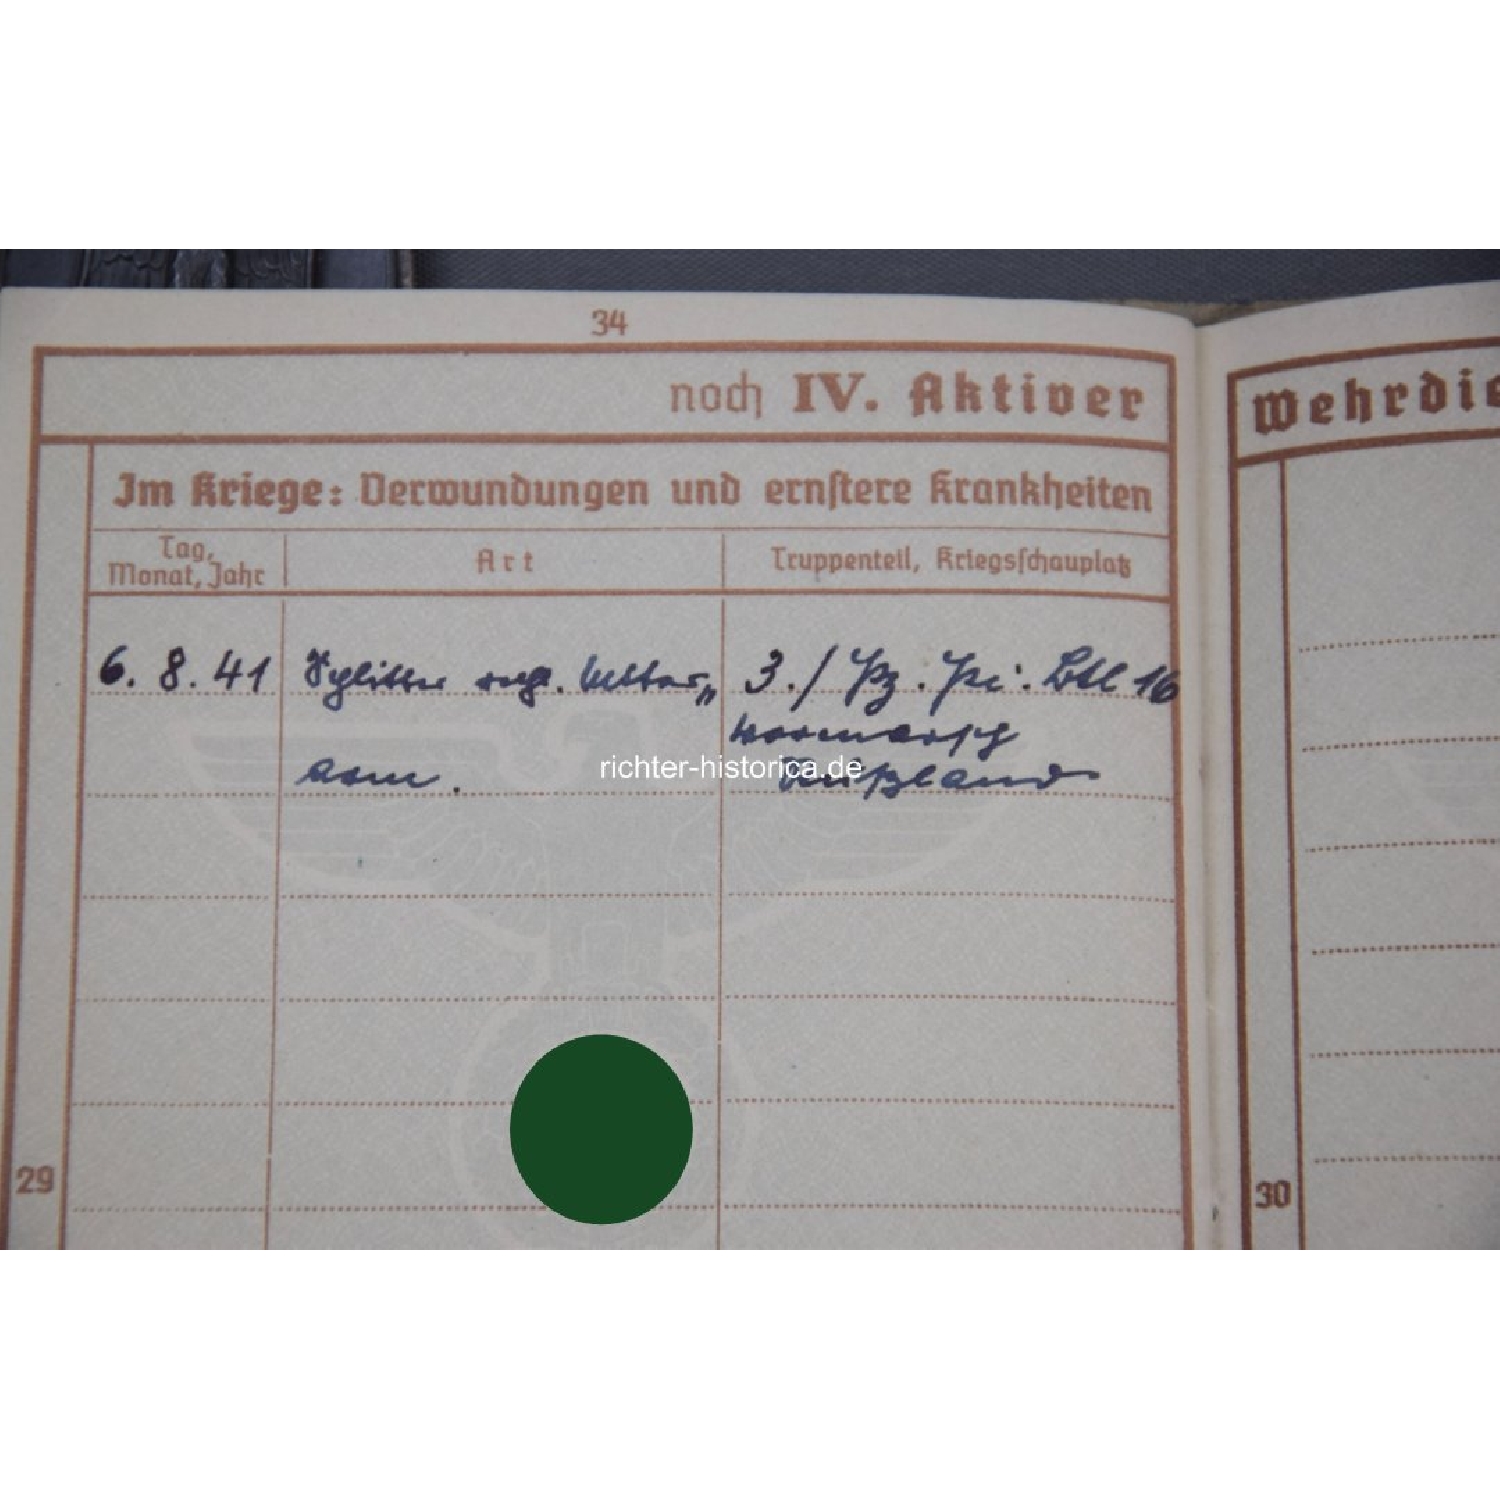 34
noch IV. Aktiver
Wehrdie
Im Kriege: Verwundungen und ernstere Krankheiten
Tag,
Monat, Jahr
Art
Truppenteil, Kriegsschauplatz
6. 8. 41
Splitter re. Unter„
arm.
3./ Pz. Pi. Btl 16
Vormarsch
Rußland
richter-historica.de
29
30